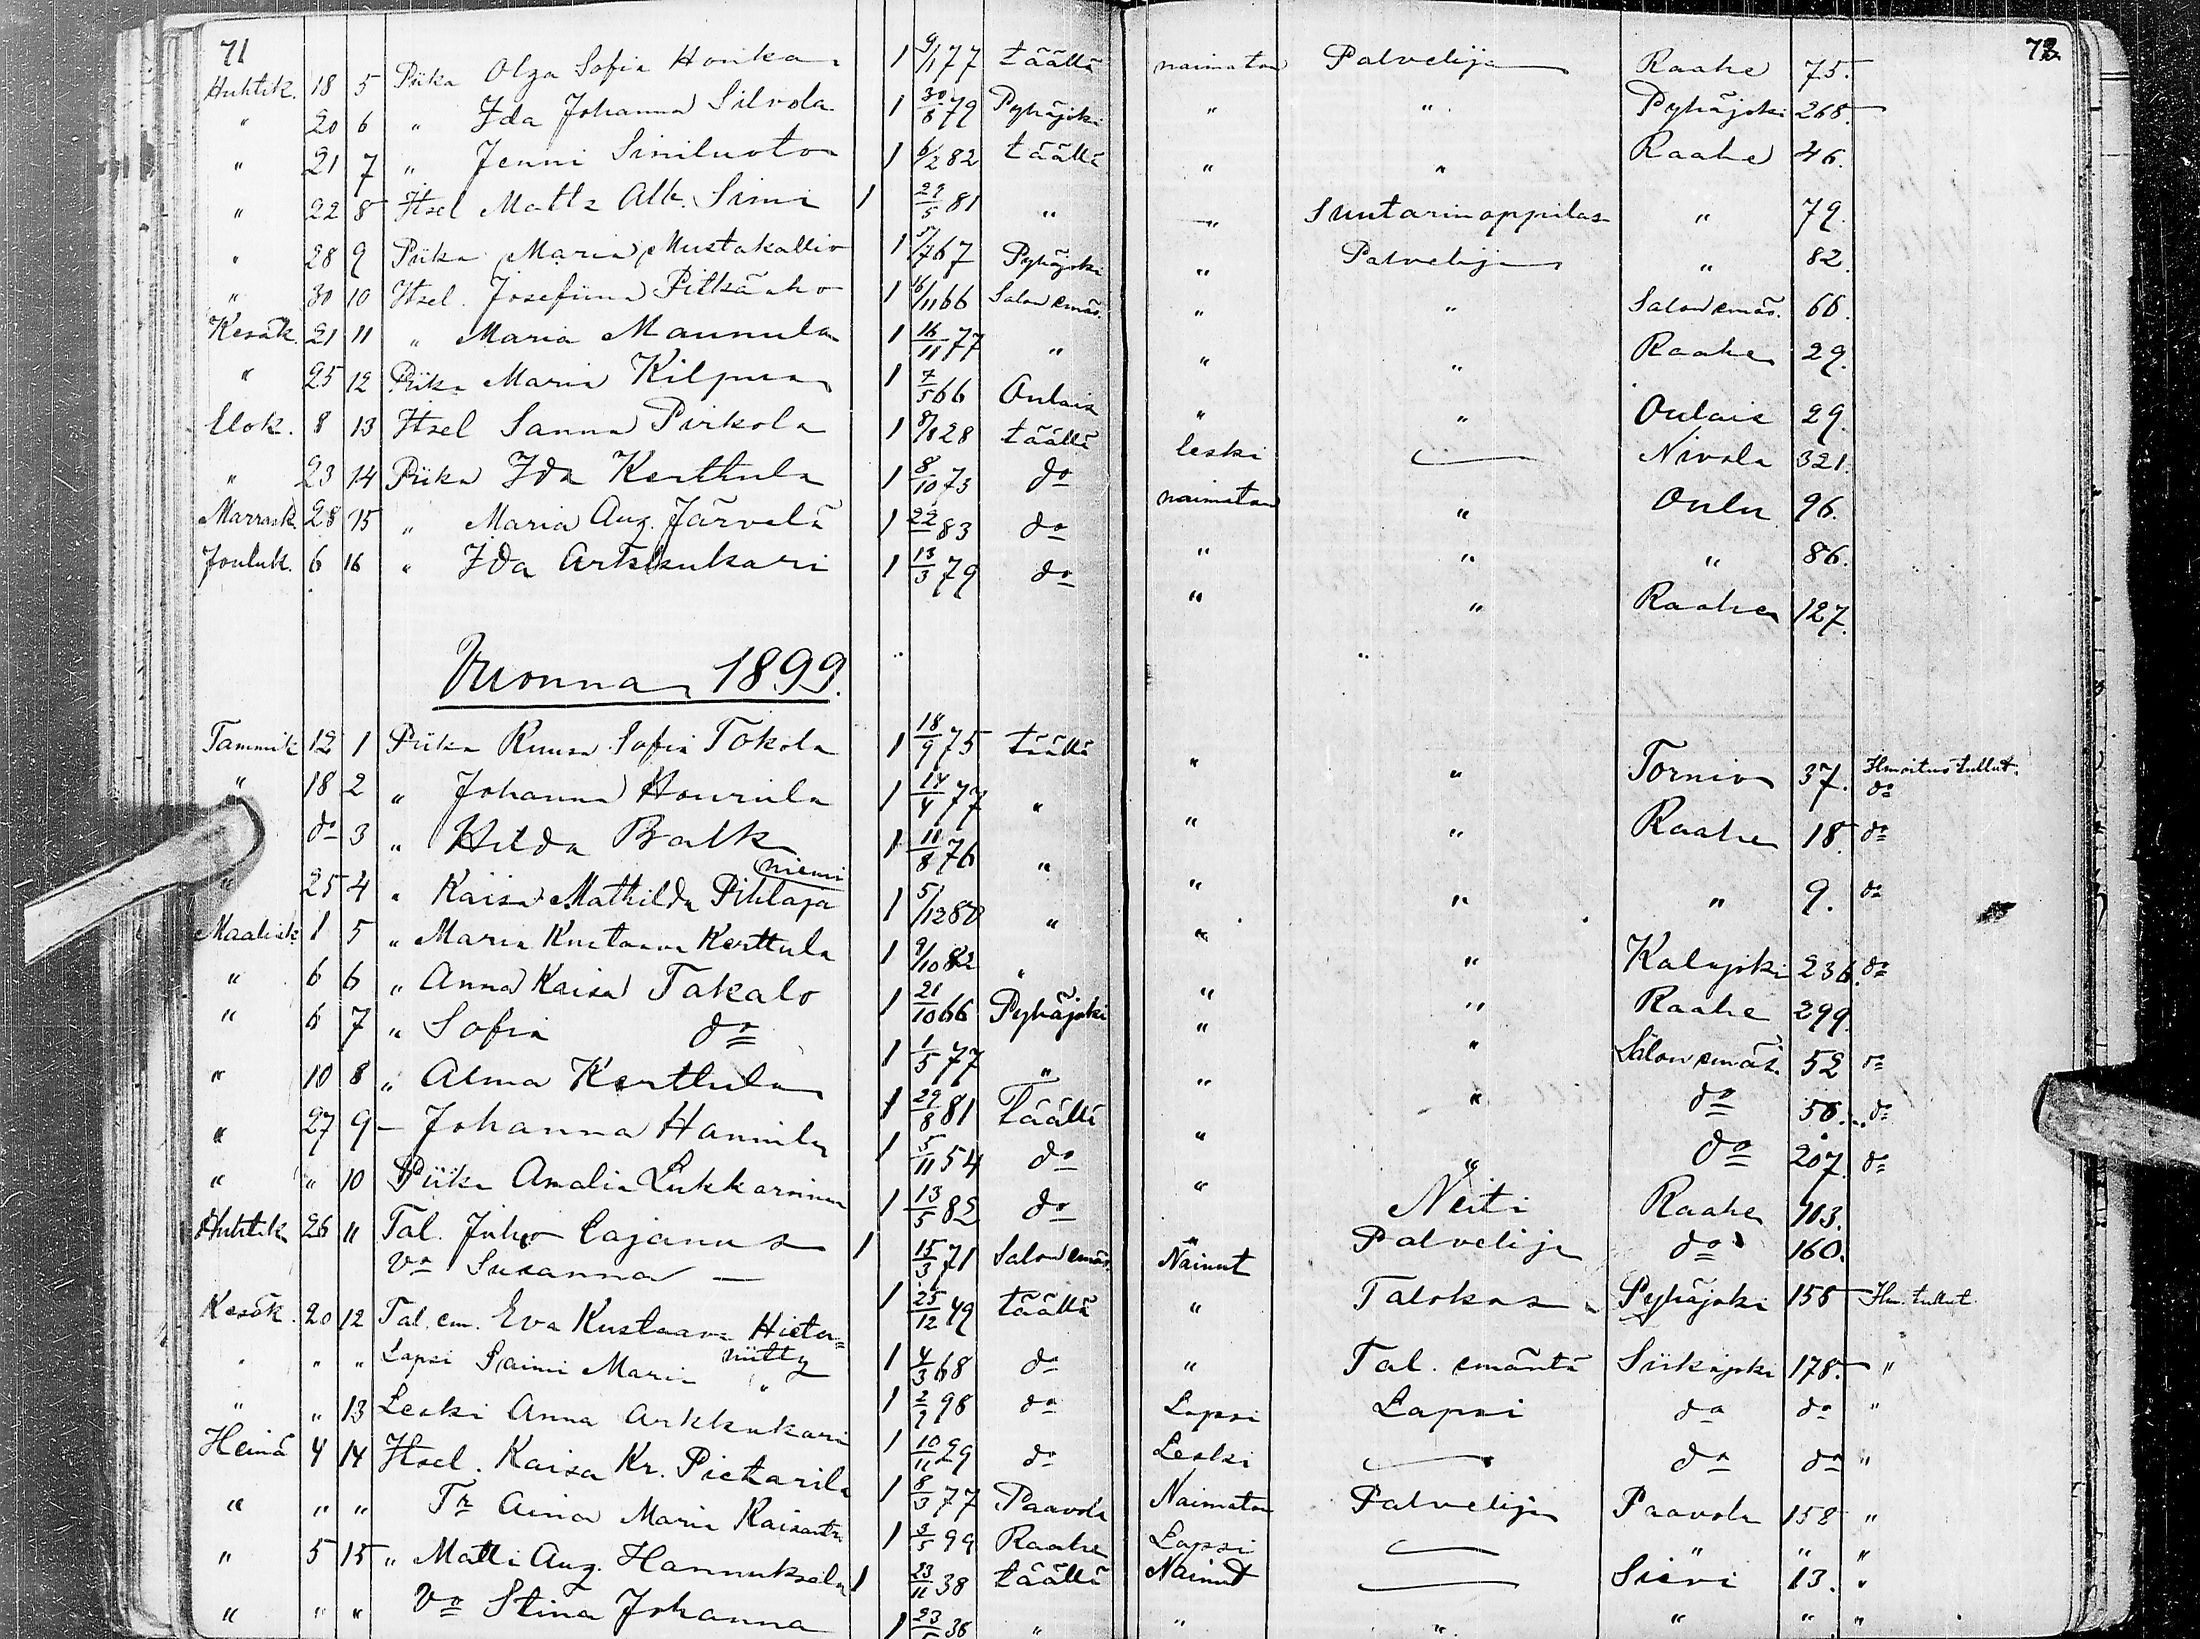 71 72
Huhtik. 18 5 Piika Olga Sofia Honka 1 9/1 77 täällä naimaton Palvelija Raahe 75.
" 20 6 " Ida Johanna Silvola 1 30/8 79 Pyhäjoki " " Pyhäjoki 268.
" 21 7 " Jenni Siniluoto 1 6/2 82 täällä " " Raahe 46.
" 22 8 Itsel Matts Alb. Simi 1 29/5 81 " " Suutarinoppilas " 79.
" 28 9 Piika Maria Mustakallio 1 5/7 67 Pyhäjoki " Palvelija " 82.
" 30 10 Itsel. Josefiina Pitkäaho 1 16/11 66 Salon emäs. " " Salon emäs. 66.
Kesäk. 21 11 " Maria Maunula 1 16/11 77 " " " Raahe 29.
" 25 12 Piika Maria Kilpua 1 7/5 66 Oulais " " Oulais 29.
Elok. 8 13 Itsel Sanna Pirkola 1 8/8 28 täällä leski — Nivala 321.
" 23 14 Piika Ida Kerttula 1 8/10 73 do naimaton " Oulu 96.
Marrask. 28 15 " Maria Aug. Järvelä 1 22/ 83 do " " " 86.
Jouluk. 6 16 " Ida Arkkukari 1 13/3 79 do " " Raahe 127.
Vuonna 1899.
Tammik 12 1 Piika Ruusa Sofia Tokola 1 18/9 75 täällä " " Tornio 37. Ilmoitus tullut.
" 18 2 " Johanna Hourula 1 14/4 77 " " " Raahe 18. do
do 3 " Hilda Balk 1 11/8 76 " " " " 9. do
" 25 4 " Kaisa Mathilda Pihlajaniemi 1 5/12 80 " " " Kalajoki 236. do
Maalisk 1 5 " Maria Kustaava Kerttula 1 9/10 82 " " " Raahe 299.
" 6 6 " Anna Kaisa Takalo 1 21/10 66 Pyhäjoki " " Salon emäs. 52 do
" 6 7 " Sofia do 1 1/5 77 " " " do 50. do
" 10 8 " Alma Kerttula 1 29/8 81 Täällä " " do 207 do
" 27 9 – Johanna Hannila 1 5/11 54 do " Neiti Raahe 103.
" " 10 Piika Amalia Lukkarinen 1 13/5 82 do " Palvelija do 160.
Huhtik 26 11 Tal. Juho Cajanus 1 15/3 71 Salon emäs. Nainut Talokas Pyhäjoki 158 Ilm. tullut
Vo Susanna — 1 25/12 49 täällä "
Kesäk. 20 12 Tal. em. Eva Kustaava Hietaniitty 1 4/3 68 do " Tal. emäntä Siikajoki 178. "
" " " Lapsi Saimi Maria " 1 2/9 98 do Lapsi Lapsi do do "
" " 13 Leski Anna Arkkukari 1 10/11 29 do Leski — do do "
Heinä 4 14 Itsel. Kaisa Kr. Pietarila 1 8/3 77 Paavola Naimaton Palvelija Paavola 158 "
" " " Tr Aina Maria Kaisant. 1 3/5 99 Raahe Lapsi — " " "
" 5 15 " Matti Aug. Hannuksela 1 23/11 38 täällä Nainut — Sievi 13. "
" " " Vo Stina Johanna 1 23/ 36 " " " " " "